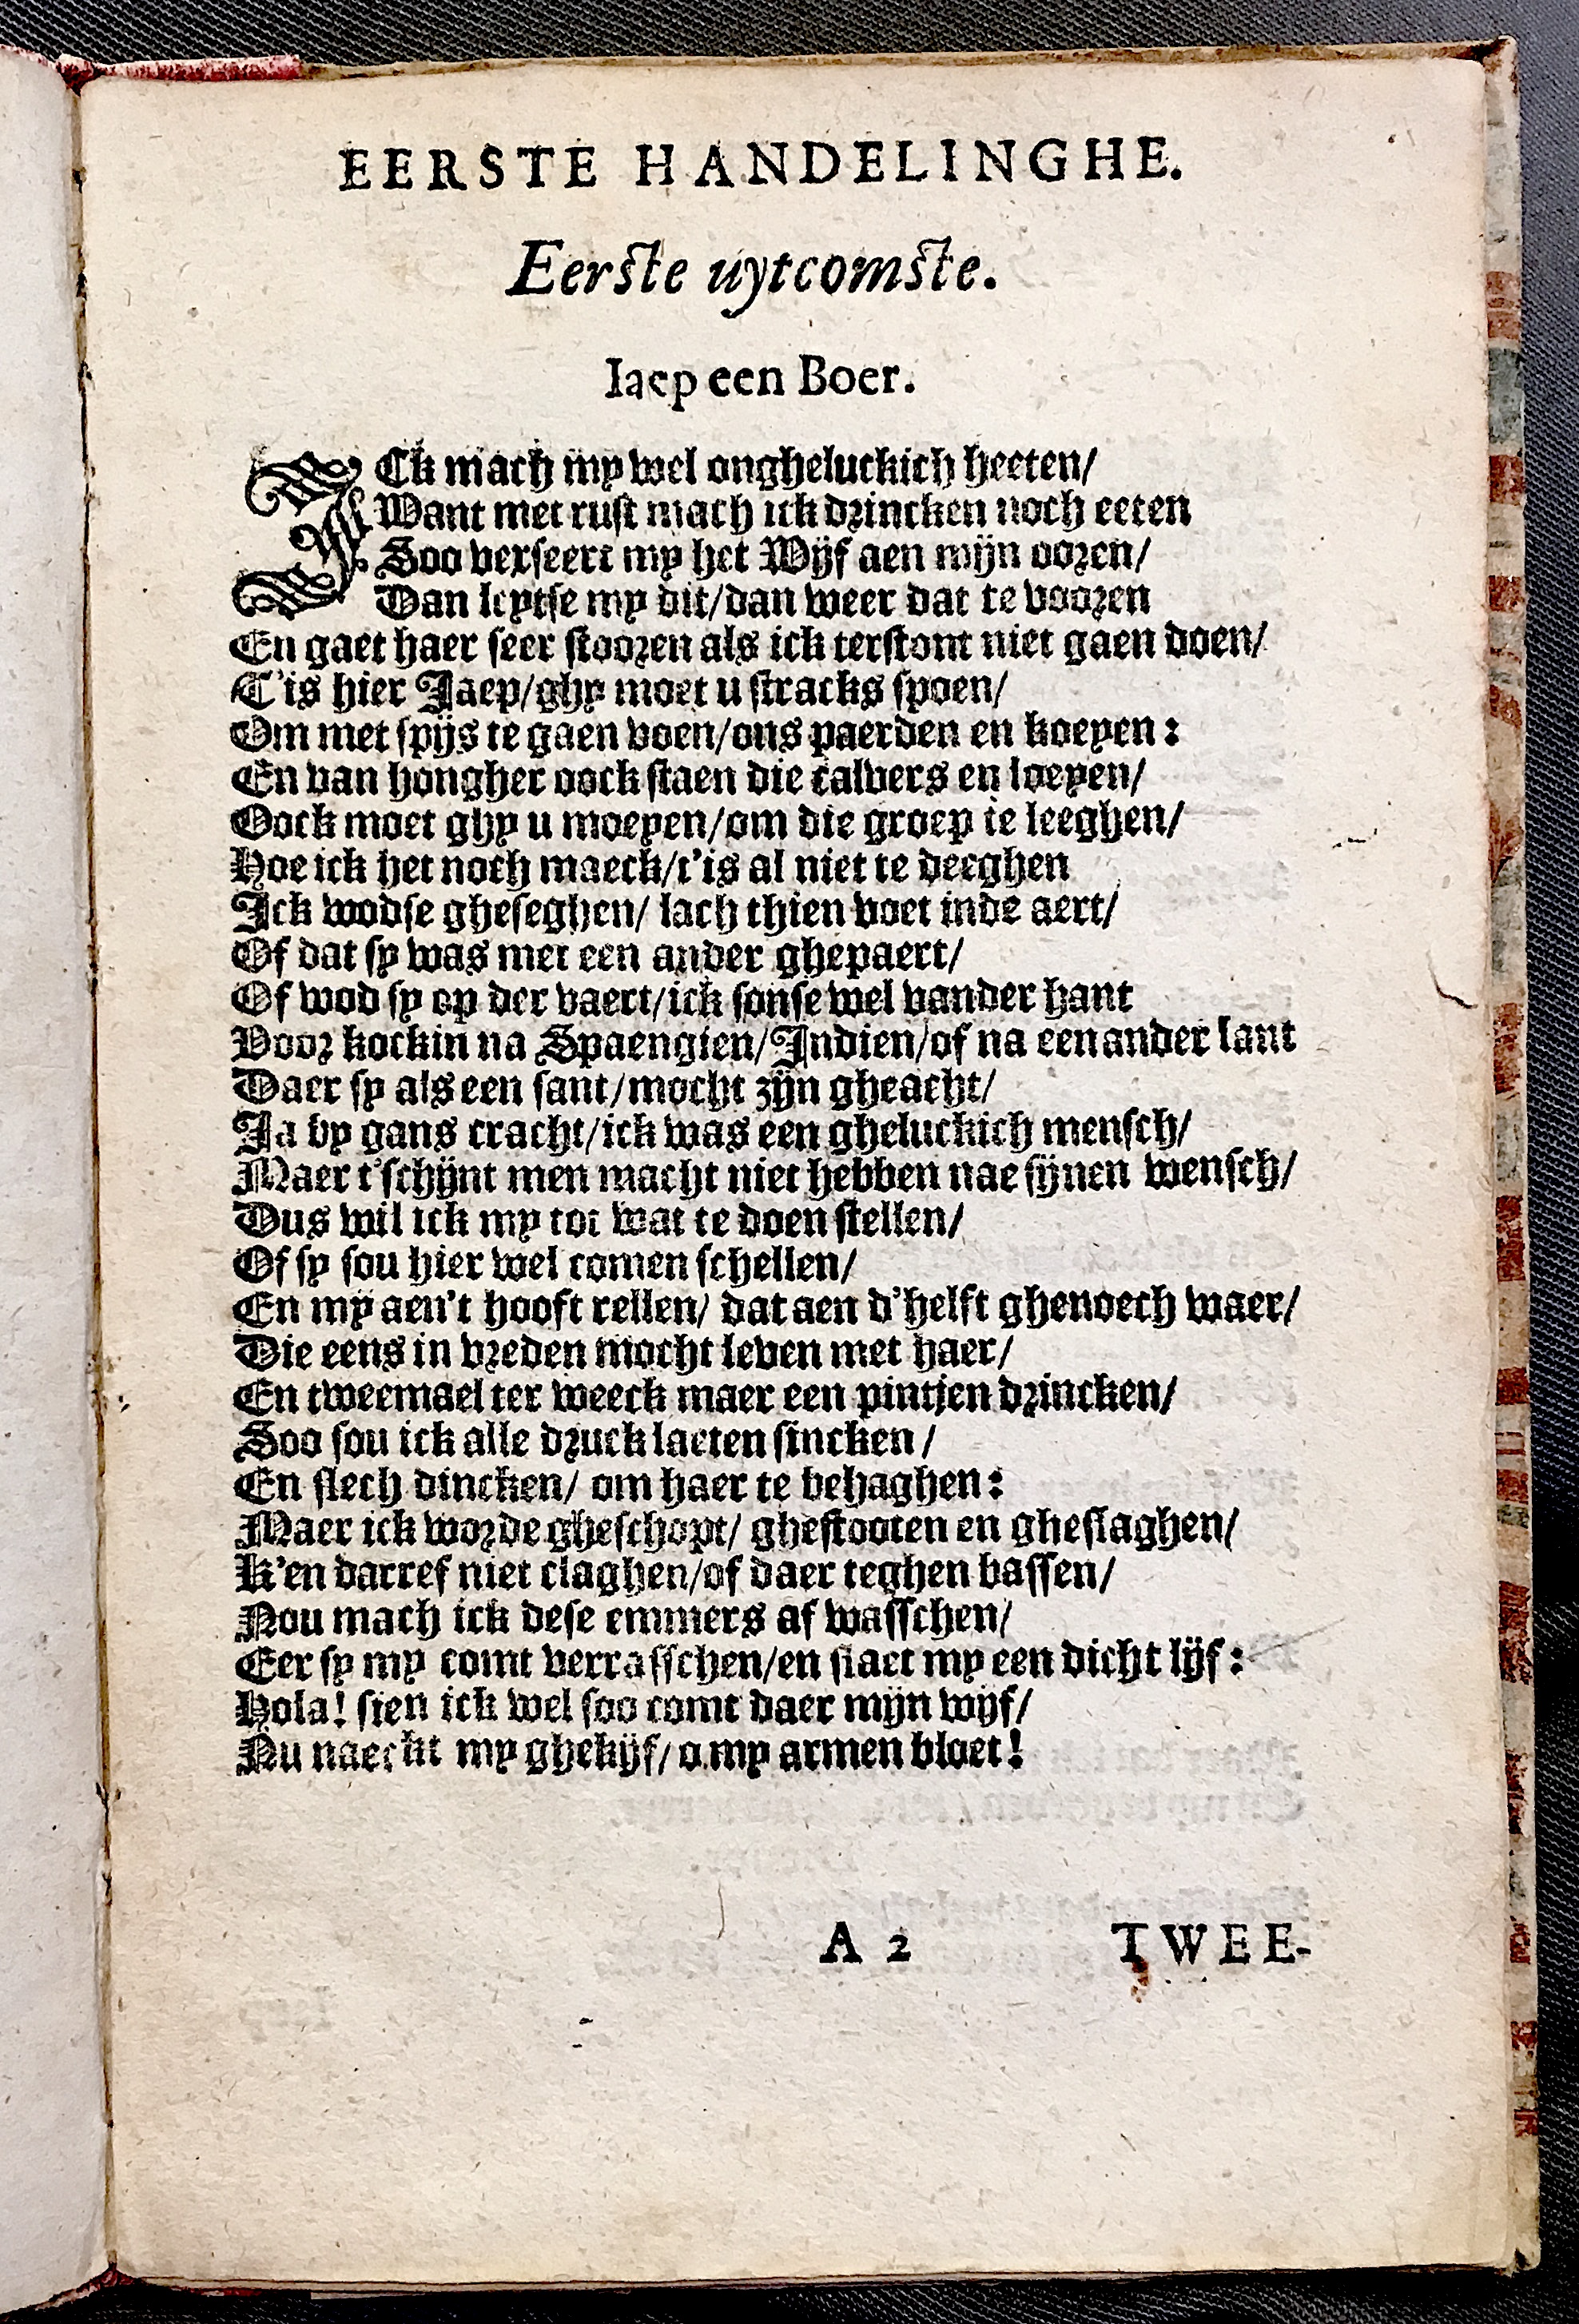 EERSTE HANDELINGHE.
Eerste uytcomste.
Iaep een Boer.
ICk mach my wel ongheluckich heeten/
Want met rust mach ick drincken noch eeten
Soo verseert my het Wijf aen mijn ooren/
Dan leytse my dit/dan weer dat te vooren
En gaet haer seer stooren als ick terstont niet gaen doen/
T'is hier Jaep/ghy moet u stracks spoen/
Om met spijs te gaen voen/ons paerden en koeyen:
En van hongher oock staen die calvers en loeyen/
Oock moet ghy u moeyen/om die groep te leeghen/
Hoe ick het noch maeck/t'is al niet te deeghen
Ick wodse gheseghen/ lach thien voet inde aert/
Of dat sy was met een ander ghepaert/
Of wod sy op der vaert/ick sonse wel vander hant
Voor kockin na Spaengien/Indien/of na een ander lant
Daer sy als een sant/mocht zijn gheacht/
Ja by gans cracht/ick was een gheluckich mensch/
Maer t'schijnt men macht niet hebben nae sijnen wensch/
Dus wil ick my tot wat te doen stellen/
Of sy sou hier wel comen schellen/
En my aen't hooft rellen/ dat aen d'helft ghenoech waer/
Die eens in vreden mocht leven met haer/
En tweemael ter weeck maer een pintjen drincken/
Soo sou ick alle druck laeten sincken/
En slech dincken/ om haer te behaghen:
Maer ick worde gheschopt/ ghestooten en gheslaghen/
K'en darref niet claghen/of daer teghen bassen/
Nou mach ick dese emmers af wasschen/
Eer sy my comt verrasschen/en slaet my een dicht lijf:
Hola! sien ick wel soo comt daer mijn wijf/
Nu naeckt my ghekijf/o my armen bloet!
A 2
TWEE-